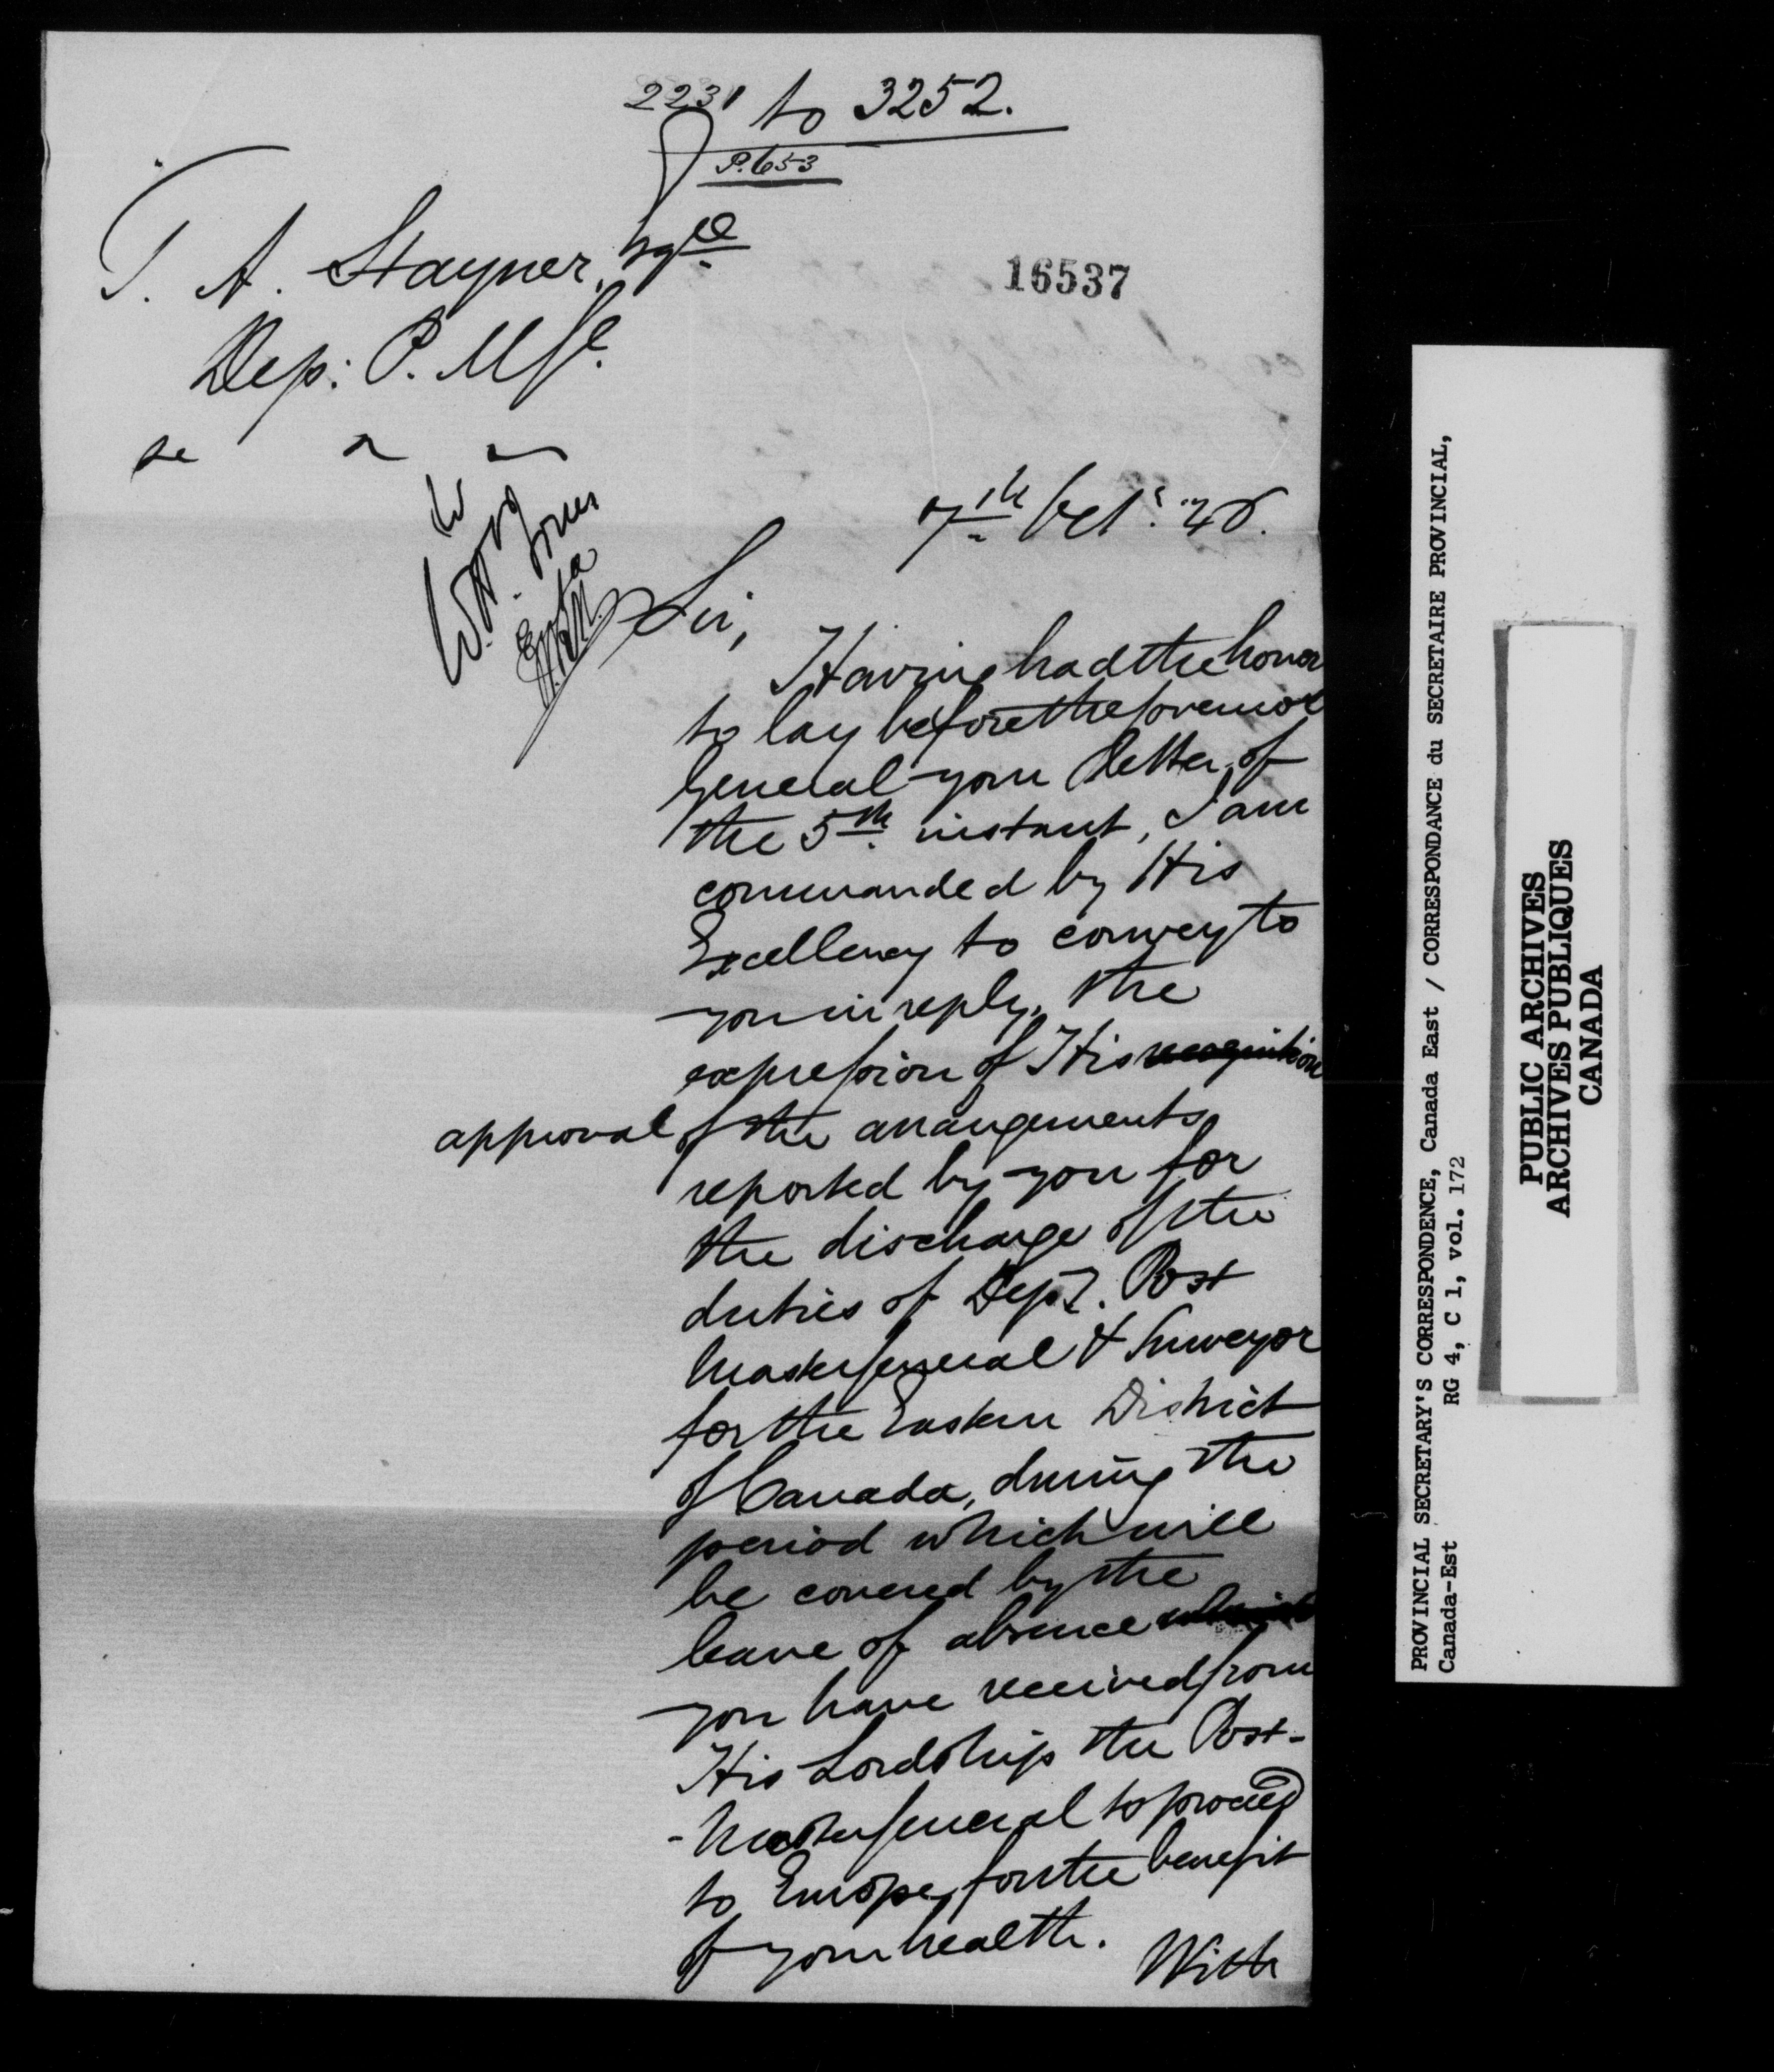 2231 to 3252.
P. 653
T. A. Stayner, Esqre
16537
Dep: P. M. Gl.
&c
7th Octr. 46.
W. H. Jones
Sir,
Having had the honor
to lay before the Governor
General your Letter of
the 5th instant, I am
commanded by His
Excellency to convey to
you in reply, the
expression of His recognition
approval of the arrangements
reported by you for
the discharge of the
duties of Depy. Post
Master General & Surveyor
for the Eastern District
of Canada, during the
period which will
be covered by the
leave of absence which
you have received from
His Lordship the Post-
-Master General to proceed
to Europe, for the benefit
of your health.
With
PROVINCIAL SECRETARY'S CORRESPONDENCE, Canada East / CORRESPONDANCE du SECRETAIRE PROVINCIAL,
Canada-Est RG 4, C 1, vol. 172
PUBLIC ARCHIVES
ARCHIVES PUBLIQUES
CANADA